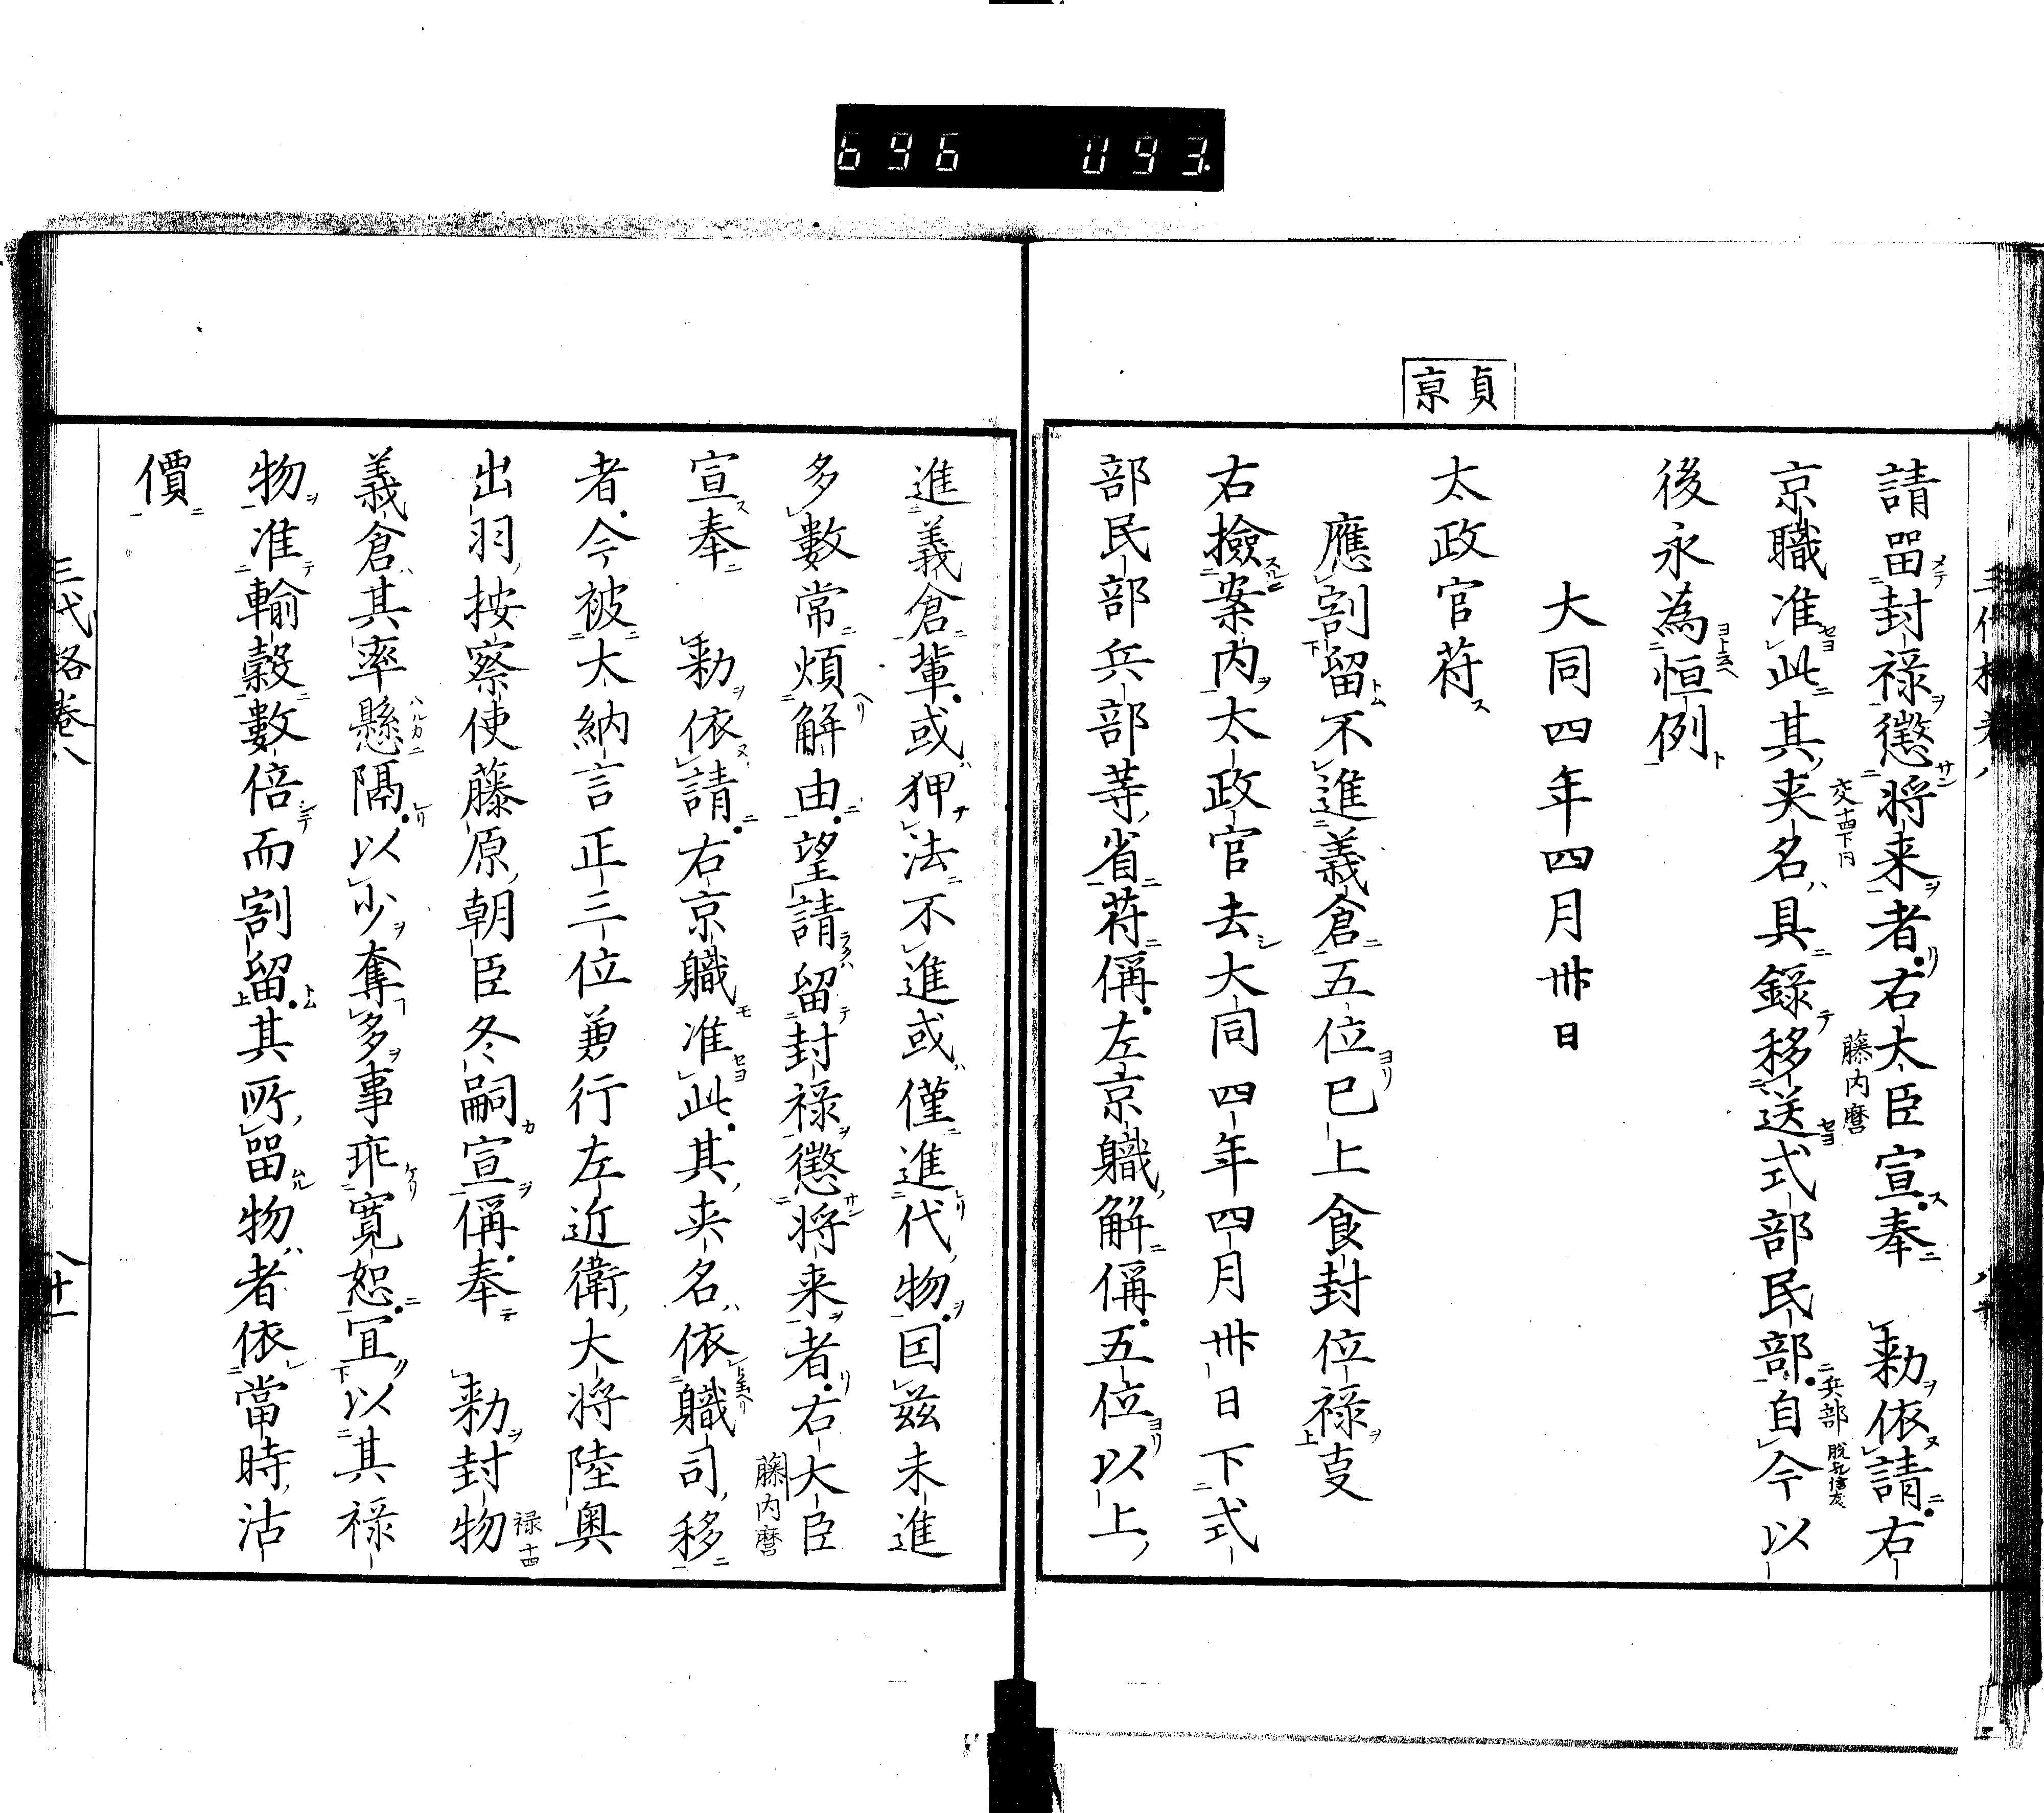 696 093.
貞京
請畱封禄懲将来者右大臣宣奉　勅依請右
京職准此其夾名具錄移送式部民部自今以
後永為恒例
大同四年四月卅日
太政官苻
應割留不進義倉五位已上食封位禄事
右撿案内太政官去大同四年四月卅日下式
部民部兵部等省苻偁左京職解偁五位以上
進義倉輩或狎法不進或僅進代物因茲未進
多數常煩解由望請留封禄懲将来者右大臣
宣奉　勅依請右京職准此其夾名依職司移
者今被大納言正三位兼行左近衛大将陸奥
出羽按察使藤原朝臣冬嗣宣偁奉　勅封物
義倉其率懸隔以少奪多事乖寛恕冝以其禄
物准輸穀數倍而割留其所畱物者依當時沽
價
三代格巻八
八廿一
藤内麿
兵部
藤内麿
禄十四